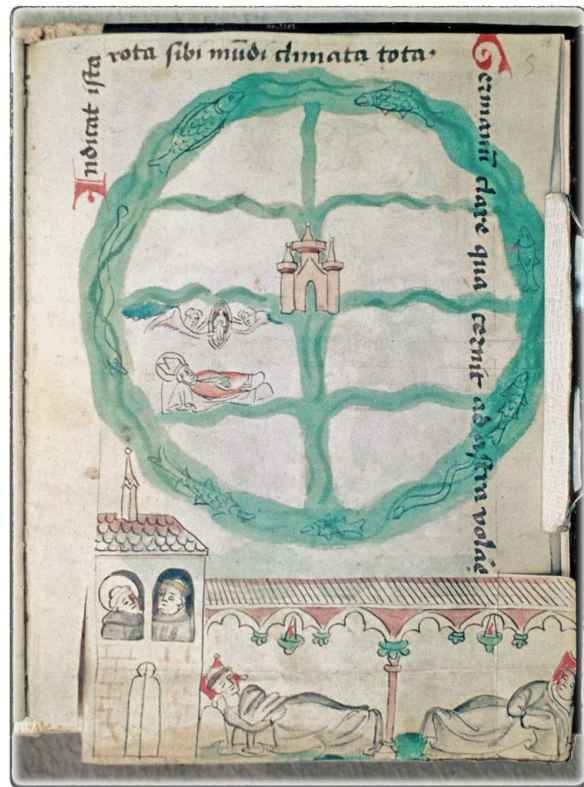 Indicat ista
rota sibi mūdi climata tota·
Germanū clare qua cernit ad astra
5